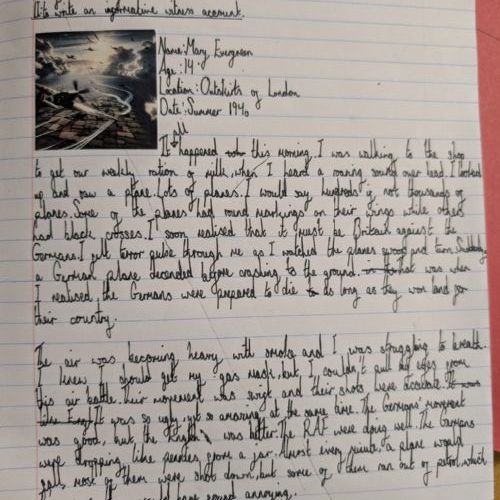 L.I: to write an informative witness account.
Name: Mary Evergreen
Age: 14
Location: Outskirts of London
Date: Summer 1940
all
It happened this morning. I was walking to the shop
to get our weekly ration of milk, when I heard a roaring sound over head. I looked
up and saw a plane. Lots of planes. I would say hundreds if not thousands of
planes. Some of the planes had round markings on their wings while others
had black crosses. I soon realised that it must be Britain against the
Germans. I felt terror pulse through me as I watched the planes and turn. Suddenly,
a German plane decended before crashing to the ground. that was when
I realised, the Germans were prepared to die as long as they won land for
their country.
The air was becoming heavy with smoke and I was struggling to breath.
I knew I should get my gas mask, but I couldn't pull my eyes from
this air battle. Their movement was swift and their shots were accurate. It was
It was so ugly, yet so amazing at the same time. The Germans' movement
was good, but the English was better. The RAF were doing well. The Germans
were dropping like pennies from a jar. Almost every minute, a plane would
fall, most of them were shot down, but some of them ran out of petrol, which
sound annoying.